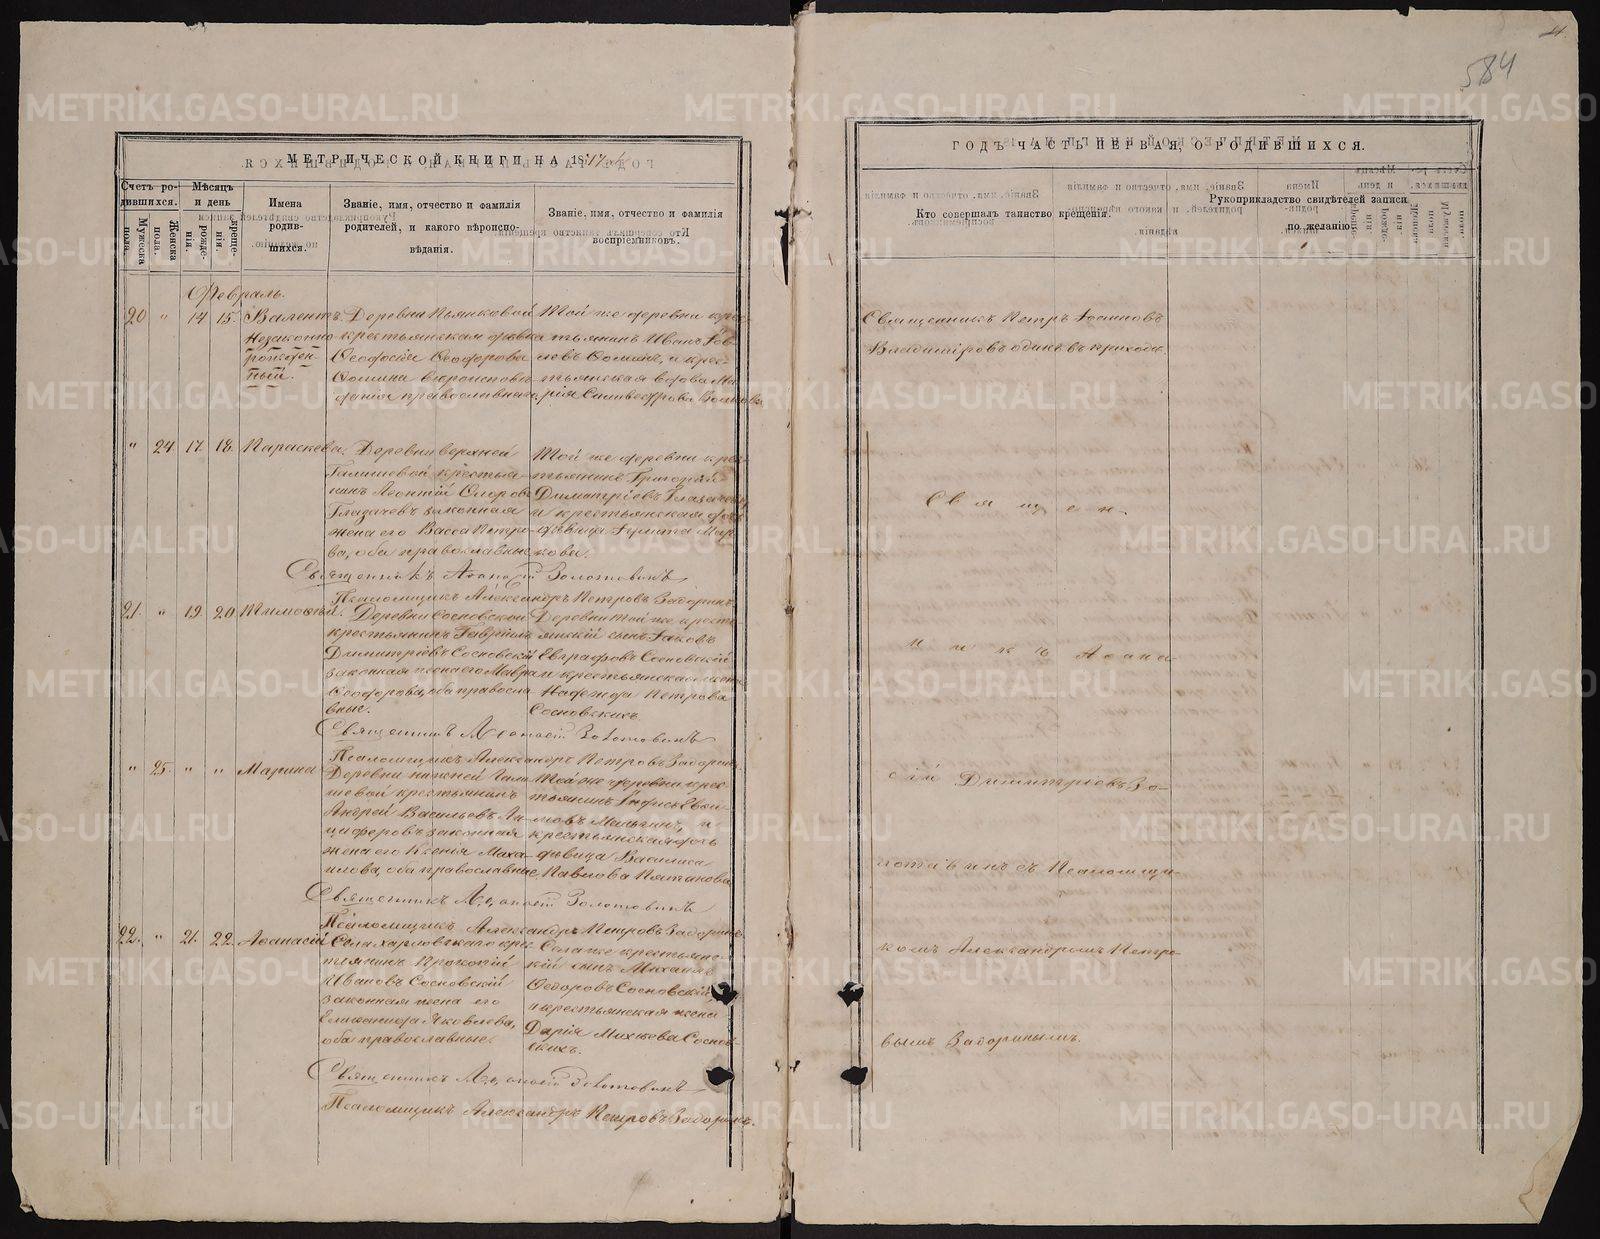 584
МЕТРИЧЕСКОЙ КНИГИ НА 18
Счетъ ро-
дившихся.
Мужеска
пола.
Женска
пола.
Мѣсяцъ
и день
рожде-
нія.
креще-
нія.
Имена
родив-
шихся.
Званіе, имя, отчество и фамилія
родителей, и какого вѣроиспо-
вѣданія.
Званіе, имя, отчество и фамилія
воспріемниковъ.
ГОДЪ ЧАСТЬ ПЕРВАЯ, О РОДИВШИХСЯ.
Кто совершалъ таинство крещенія.
Рукоприкладство свидѣтелей записи
по желанію
Февраль.
20 " 14 15. Валентъ
Незаконно
рожден-
ный.
Деревни Пьянковой
крестьянская дѣвка
Ѳеодосія Ѳеодорова
Ѳомина вѣроисповѣ-
данія православнаго
Той же деревни крес-
тьянинъ Иванъ
Ѳоминъ, и крес-
тьянская вдова Ма-
рія Сильвестрова
Священникъ Петръ Іоанновъ
Владиміровъ одинъ въ приходѣ
" 24 17. 18. Параскева.
Деревни верхней
Галишевой крестья-
нинъ Леонтій
Глазачевъ законная
жена его Васса Петро-
ва, оба православные
Той же деревни крес-
тьянинъ Григорій
Димитріевъ Глазачевъ
и крестьянская дочь
дѣвица
кова.
Священникъ Аѳанасій Золотовинъ
Псаломщикъ Александръ Петровъ Задоринъ
21. " 19. 20. Тимоѳей.
Деревни Сосновской
крестьянинъ Гавріилъ
Димитріевъ Сосновскій
законная жена его Мавра
Ѳеодорова, оба правосла-
вные.
Деревни той же кресть-
янскій сынъ Іаковъ
Евграфовъ Сосновскій
и крестьянская жена
Надежда Петрова
Сосновскихъ
Священникъ Аѳанасій Золотовинъ
Псаломщикъ Александръ Петровъ Задоринъ
" 25. " " Марина
Деревни нижней Гали-
шевой крестьянинъ
Андрей Васильевъ
законная
жена его Ксенія Миха-
илова, оба православные
Той же деревни крес-
тьянинъ
и
крестьянская дочь
дѣвица Василиса
Павлова Пятанова
Священникъ Аѳанасій Золотовинъ
Псаломщикъ Александръ Петровъ Задоринъ
22. " 21. 22. Аѳанасій
Села Харловскаго крес-
тьянинъ Прокопій
Ивановъ Сосновскій
законная жена его
Яковлева,
оба православные.
Села же крестьянс-
кій сынъ Михаилъ
Ѳедоровъ Сосновскій
и крестьянская жена
Дарія Михѣева Соснов-
скихъ.
Священникъ Аѳанасій Золотовинъ
Псаломщикъ Александръ Петровъ Задоринъ.
Священ-
никъ Аѳана-
сій Димитріевъ Зо-
лотавинъ съ Псаломщи-
комъ Александромъ Петро-
вымъ Задоринымъ.
METRIKI.GASO-URAL.RU